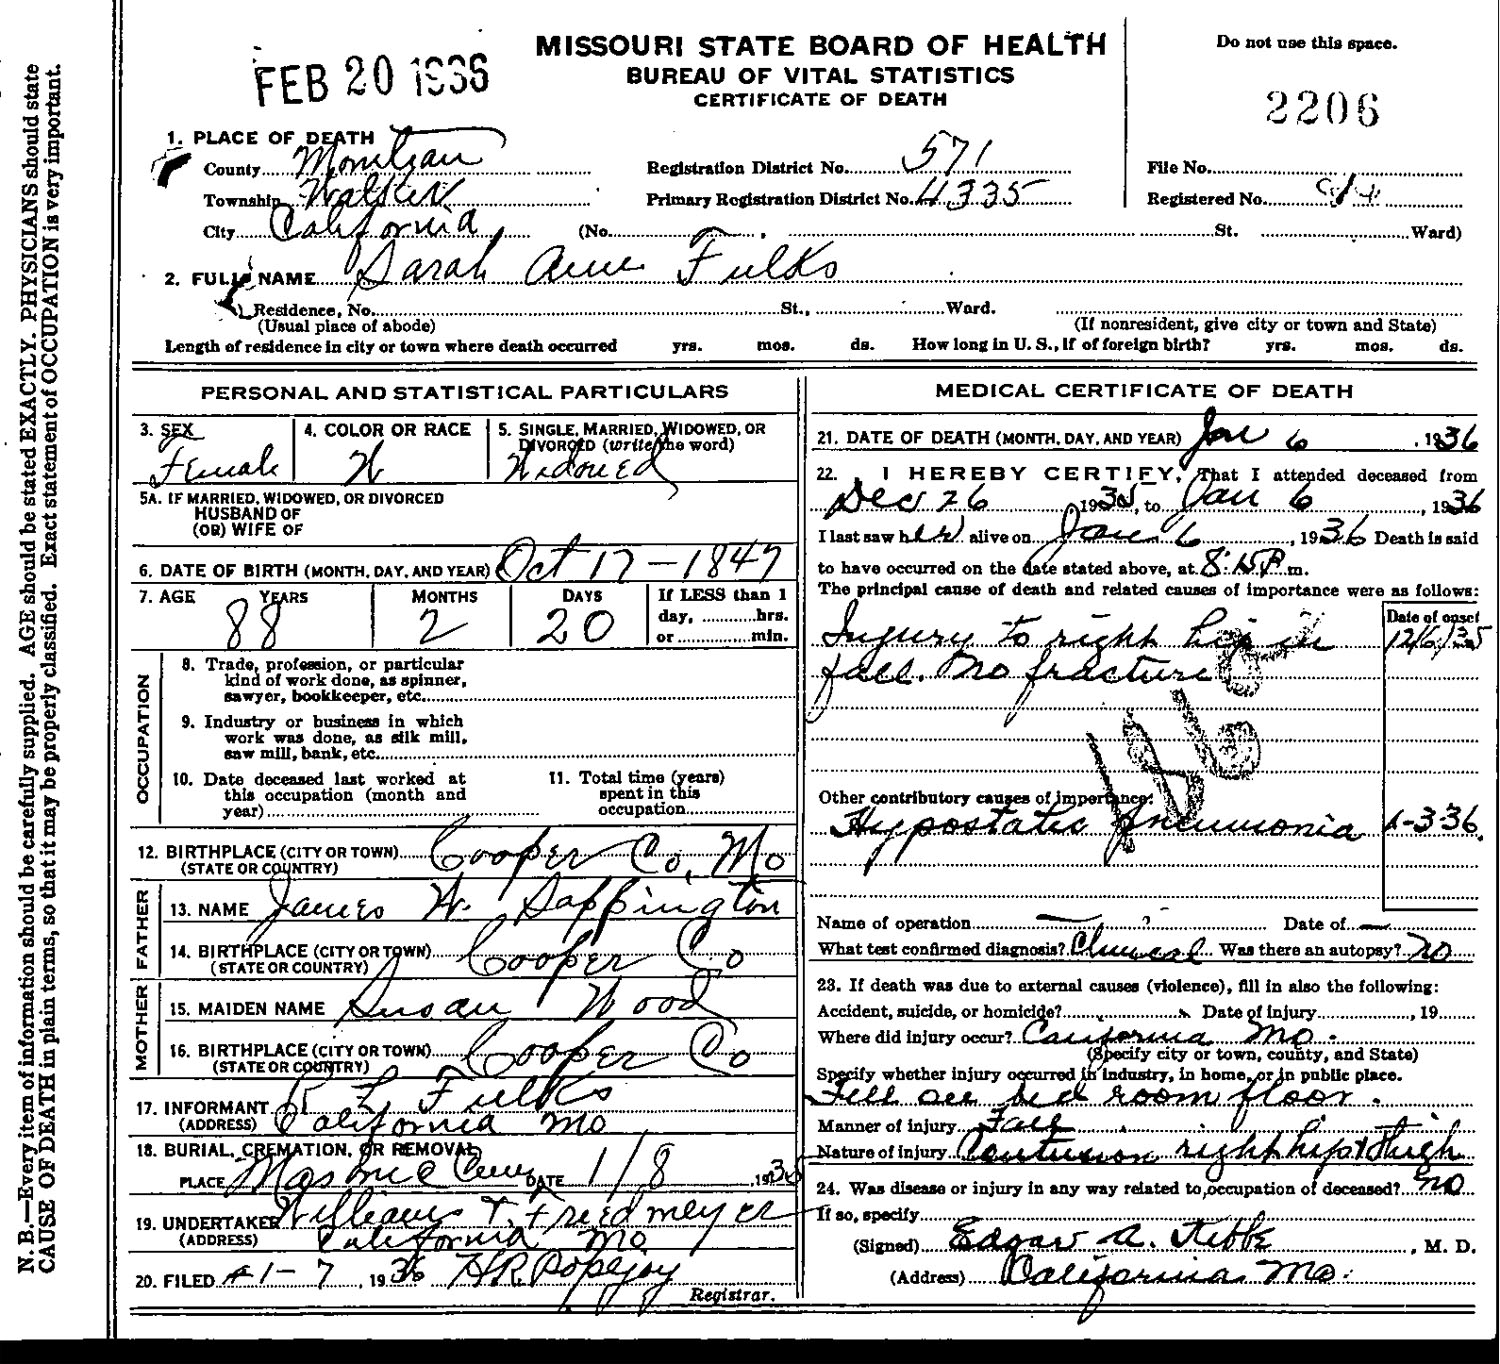 N. B.—Every item of information should be carefully supplied. AGE should be stated EXACTLY. PHYSICIANS should state
CAUSE OF DEATH in plain terms, so that it may be properly classified. Exact statement of OCCUPATION is very important.
FEB 20 1936
MISSOURI STATE BOARD OF HEALTH
BUREAU OF VITAL STATISTICS
CERTIFICATE OF DEATH
Do not use this space.
2206
1. PLACE OF DEATH
County Moniteau
Township Walker
City California (No. , St. Ward)
Registration District No. 571
Primary Registration District No. 4335
File No.
Registered No.
2. FULL NAME Sarah Ann Fulks
Residence, No. St., Ward.
(Usual place of abode) (If nonresident, give city or town and State)
Length of residence in city or town where death occurred yrs. mos. ds. How long in U. S., if of foreign birth? yrs. mos. ds.
PERSONAL AND STATISTICAL PARTICULARS
3. SEX Female
4. COLOR OR RACE W
5. SINGLE, MARRIED, WIDOWED, OR DIVORCED (write the word) Widowed
5A. IF MARRIED, WIDOWED, OR DIVORCED
HUSBAND OF
(OR) WIFE OF
6. DATE OF BIRTH (MONTH, DAY, AND YEAR) Oct 17 - 1847
7. AGE YEARS 88 MONTHS 2 DAYS 20 If LESS than 1 day, hrs. or min.
OCCUPATION
8. Trade, profession, or particular
kind of work done, as spinner,
sawyer, bookkeeper, etc.
9. Industry or business in which
work was done, as silk mill,
saw mill, bank, etc.
10. Date deceased last worked at
this occupation (month and
year)
11. Total time (years)
spent in this
occupation
12. BIRTHPLACE (CITY OR TOWN) Cooper Co, Mo
(STATE OR COUNTRY)
FATHER
13. NAME James W. Sappington
14. BIRTHPLACE (CITY OR TOWN) Cooper Co
(STATE OR COUNTRY)
MOTHER
15. MAIDEN NAME Susan Wood
16. BIRTHPLACE (CITY OR TOWN) Cooper Co
(STATE OR COUNTRY)
17. INFORMANT R L Fulks
(ADDRESS) California Mo
18. BURIAL, CREMATION, OR REMOVAL
PLACE Masonic Cem DATE 1/8, 193
19. UNDERTAKER Williams & Friedmeyer
(ADDRESS) California Mo
20. FILED 1-7, 1936 H R Popejoy
Registrar.
MEDICAL CERTIFICATE OF DEATH
21. DATE OF DEATH (MONTH, DAY, AND YEAR) Jan 6, 1936
22. I HEREBY CERTIFY, That I attended deceased from
Dec 26, 1935, to Jan 6, 1936
I last saw her alive on Jan 6, 1936 Death is said
to have occurred on the date stated above, at 8:15P m.
The principal cause of death and related causes of importance were as follows:
Date of onset
Injury to right hip in 12/6/35
fall. No fracture
186
Other contributory causes of importance:
Hypostatic pneumonia 1-3-36.
Name of operation Date of
What test confirmed diagnosis? Clinical Was there an autopsy? no
23. If death was due to external causes (violence), fill in also the following:
Accident, suicide, or homicide? Date of injury , 19
Where did injury occur? California Mo.
(Specify city or town, county, and State)
Specify whether injury occurred in industry, in home, or in public place.
Fell on bed room floor.
Manner of injury Fall
Nature of injury Contusion right hip & thigh
24. Was disease or injury in any way related to occupation of deceased? no
If so, specify
(Signed) Edgar A. Kibbe, M. D.
(Address) California Mo.